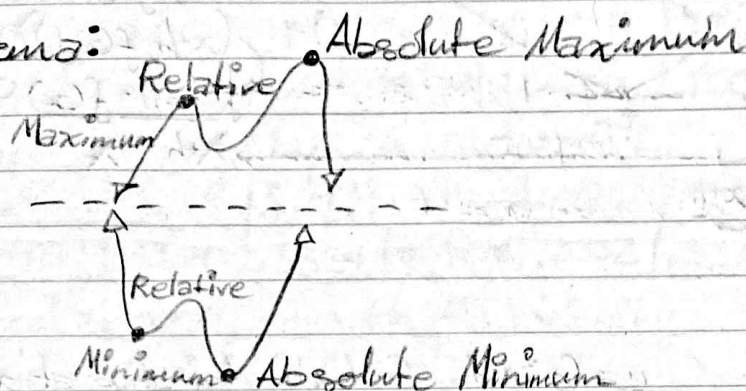 ema:
Absolute Maximum
Relative
Maximum
Relative
Minimum
Absolute Minimum